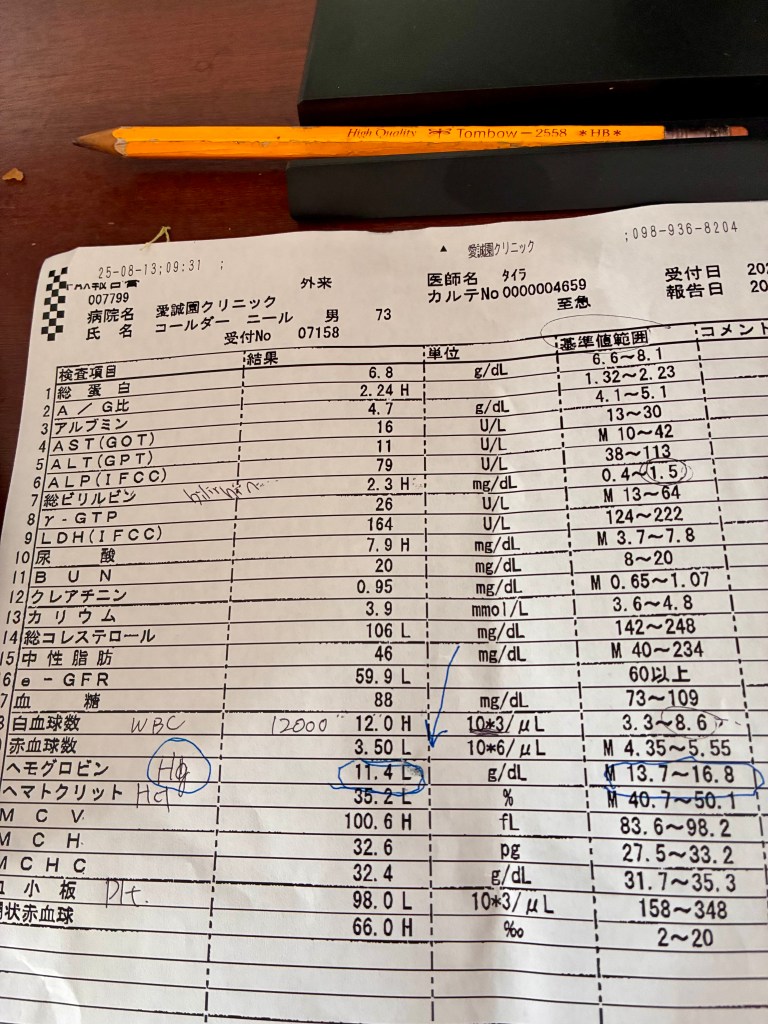 High Quality Tombow-2558 *HB*
25-08-13;09:31 ; ▲ 愛誠園クリニック ;098-936-8204
007799 外来 医師名 タイラ 受付日 202
病院名 愛誠園クリニック カルテNo 0000004659 報告日 20
氏名 コールダー ニール 男 73 至急
受付No 07158
検査項目 結果 単位 基準値範囲 コメント
1 総蛋白 6.8 g/dL 6.6~8.1
2 A/G比 2.24 H 1.32~2.23
3 アルブミン 4.7 g/dL 4.1~5.1
4 AST(GOT) 16 U/L 13~30
5 ALT(GPT) 11 U/L M 10~42
6 ALP(IFCC) 79 U/L 38~113
7 総ビリルビン 2.3 H mg/dL 0.4~1.5
8 γ-GTP 26 U/L M 13~64
9 LDH(IFCC) 164 U/L 124~222
10 尿酸 7.9 H mg/dL M 3.7~7.8
11 BUN 20 mg/dL 8~20
12 クレアチニン 0.95 mg/dL M 0.65~1.07
13 カリウム 3.9 mmol/L 3.6~4.8
14 総コレステロール 106 L mg/dL 142~248
15 中性脂肪 46 mg/dL M 40~234
6 e-GFR 59.9 L 60以上
7 血糖 88 mg/dL 73~109
8 白血球数 WBC 12000 12.0 H 10*3/μL 3.3~8.6
赤血球数 3.50 L 10*6/μL M 4.35~5.55
ヘモグロビン Hg 11.4 L g/dL M 13.7~16.8
ヘマトクリット Hct 35.2 L % M 40.7~50.1
MCV 100.6 H fL 83.6~98.2
MCH 32.6 pg 27.5~33.2
MCHC 32.4 g/dL 31.7~35.3
小板 Plt. 98.0 L 10*3/μL 158~348
状赤血球 66.0 H ‰ 2~20